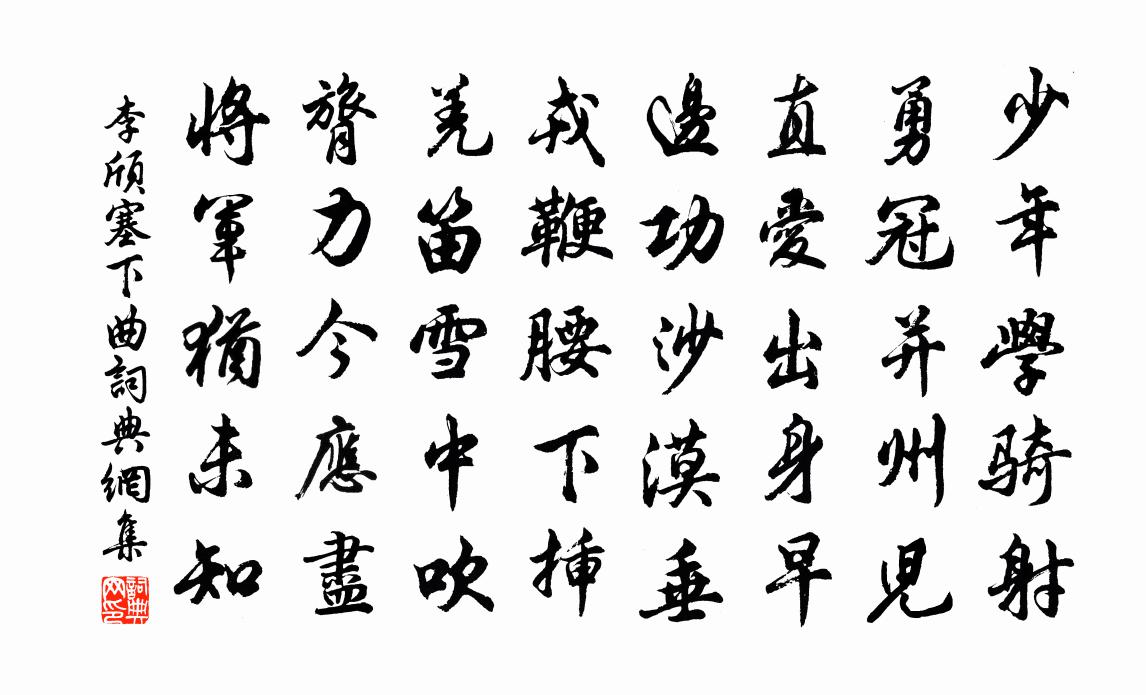 少年學騎射
勇冠并州兒
直愛出身早
邊功沙漠垂
戎鞭腰下插
羌笛雪中吹
膂力今應盡
將軍猶未知
李頎塞下曲詞典網集
詞典网印